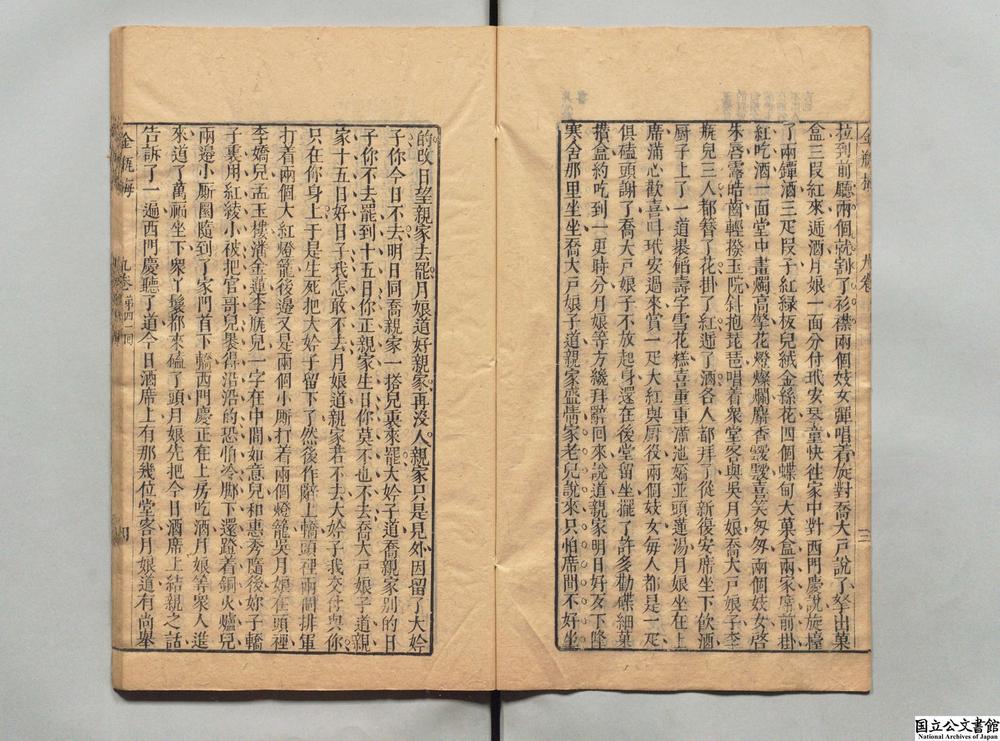 拉到前廳兩個就割了衫襟兩個妓女彈唱着旋對喬大戶說了拏出菓
盒三叚紅來遞酒月娘一面分付玳安琴童快徃家中對西門慶說旋擡
了兩罈酒三疋叚子紅綠板兒絨金絲花四個螺甸大菓盒兩家席前掛
紅吃酒一面堂中畫燭高擎花燈燦爛麝香靉靉喜笑匆匆兩個妓女啓
朱唇露皓齒輕撥玉阮斜抱琵琶唱着衆堂客與吳月娘喬大戶娘子李
瓶兒三人都簪了花掛了紅遞了酒各人都拜了從新復安席坐下飲酒
厨子上了一道裹餡壽字雪花糕喜重重滿池嬌並頭蓮湯月娘坐在上
席滿心歡喜叫玳安過來賞一疋大紅與厨役兩個妓女每人都是一疋
俱磕頭謝了喬大戶娘子不放起身還在後堂留坐擺了許多勸碟細菓
攢盒約吃到一更時分月娘等方纔拜辭回來說道親家明日好歹下降
寒舍那里坐坐喬大戶娘子道親家盛情家老兒說來只怕席間不好坐
金瓶梅
九卷
三
的改日望親家去罷月娘道好親家再沒人親家只是見外因留了大妗
子你今日不去明日同喬親家一搭兒裏來罷大妗子道喬親家別的日
子你不去罷到十五日你正親家生日你莫不也不去喬大戶娘子道親
家十五日好日子我怎敢不去月娘道親家若不去大妗子我交付與你
只在你身上于是生死把大妗子留下了然後作辭上轎頭裡兩個排軍
打着兩個大紅燈籠後邊又是兩個小厮打着兩個燈籠吳月娘在頭裡
李嬌兒孟玉樓潘金蓮李瓶兒一字在中間如意兒和惠秀隨後妳子轎
子裏用紅綾小被把官哥兒裹得沿沿的恐怕冷脚下還蹬着銅火爐兒
兩邊小厮圍隨到了家門首下轎西門慶正在上房吃酒月娘等衆人進
來道了萬福坐下衆丫鬟都來磕了頭月娘先把今日酒席上結親之話
告訴了一遍西門慶聽了道今日酒席上有那幾位堂客月娘道有尚舉
金瓶梅
九卷
第四一回
四
国立公文書館
National Archives of Japan